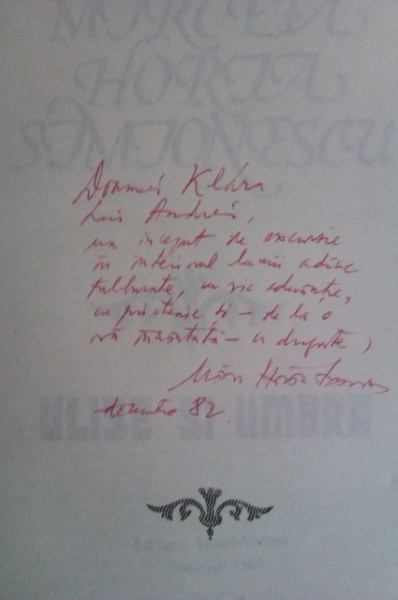 MIRCEA
HORIA
SIMIONESCU
Doamnei Klára
Lui Andrei,
un început de excursie
în interiorul lumii
tulburate, cu vie
cu prietenie și - de la o
- cu dragoste,
Mircea Horia Simionescu
decembrie 82
ULISE ȘI UMBRA